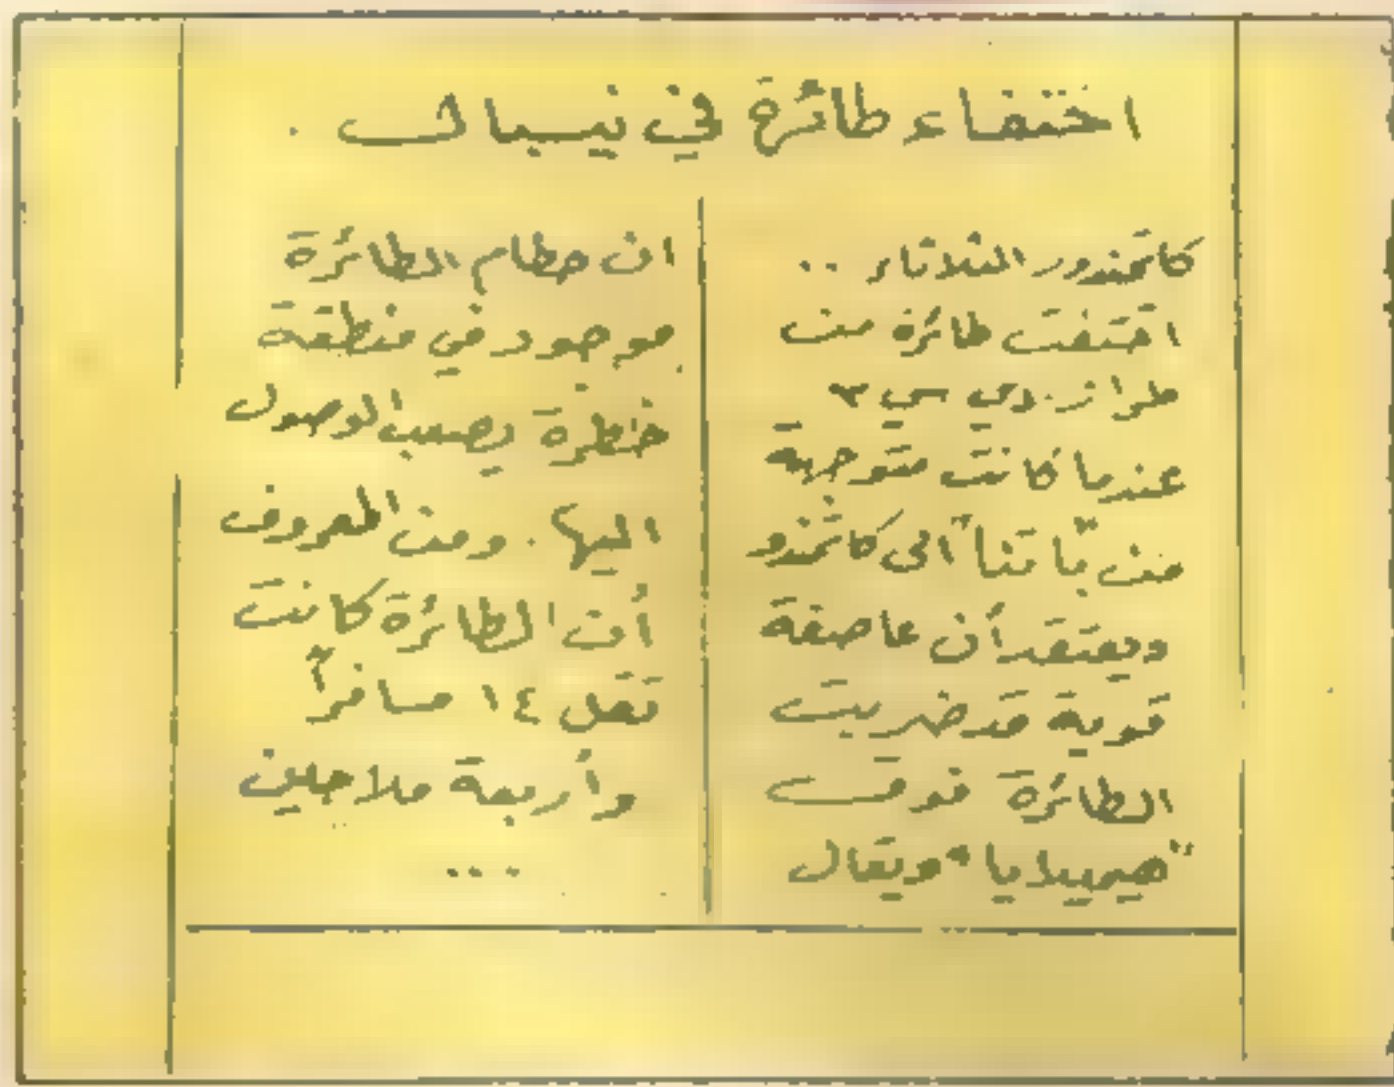 اختفاء طائرة في نيبال .
كاتمندور الثلاثاء ..
اختفت طائرة من
طراز دي سي ٣
عندما كانت متوجهة
من "باتنا" الى كاتمندو
ويعتقد أن عاصفة
قوية قد ضربت
الطائرة فوق
"هيميلايا" ويقال
ان حطام الطائرة
موجود في منطقة
خطرة يصعب الوصول
اليها . ومن المعروف
أن الطائرة كانت
تقل ١٤ مسافراً
وأربعة ملاحين
...